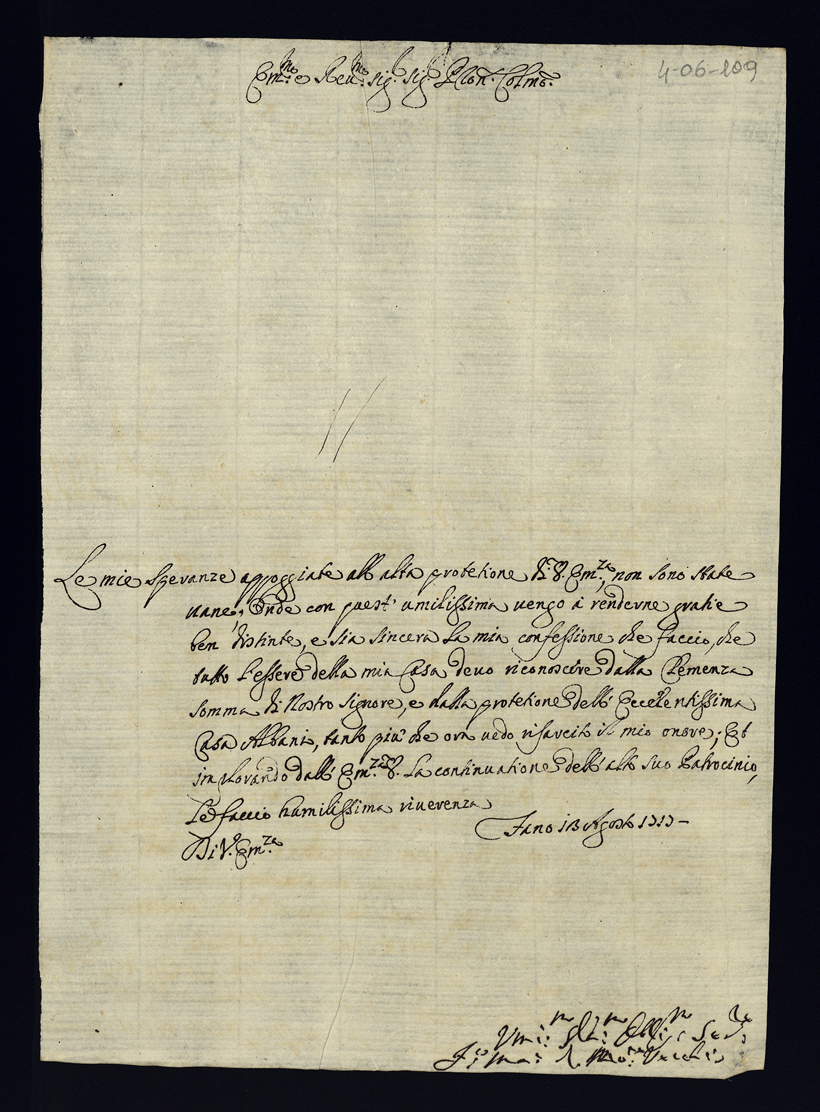 4-06-209
Em.mo e Reu.mo Sig.r Sig.r Pron. Colmo.
Le mie Speranze appoggiate all'alta protetione di V. Em.za, non sono state
uane, Onde con quest' umilissima uengo à renderne gratie
ben distinte, e sia sincera la mia confessione che faccio, che
tutto l'essere della mia Casa deuo riconoscere dalla Clemenza
somma di Nostro Signore, e dalla protetione dell' Eccellentissima
Casa Albani, tanto più che ora uedo risarcito il mio onore; Et
implorando dall' Em.za V. la continuatione dell'alto suo Patrocinio,
Le faccio humilissima riuerenza
Fano 13 Agosto 1713
Di V. Em.za
Vmi.mo Obli.mo Ser.re